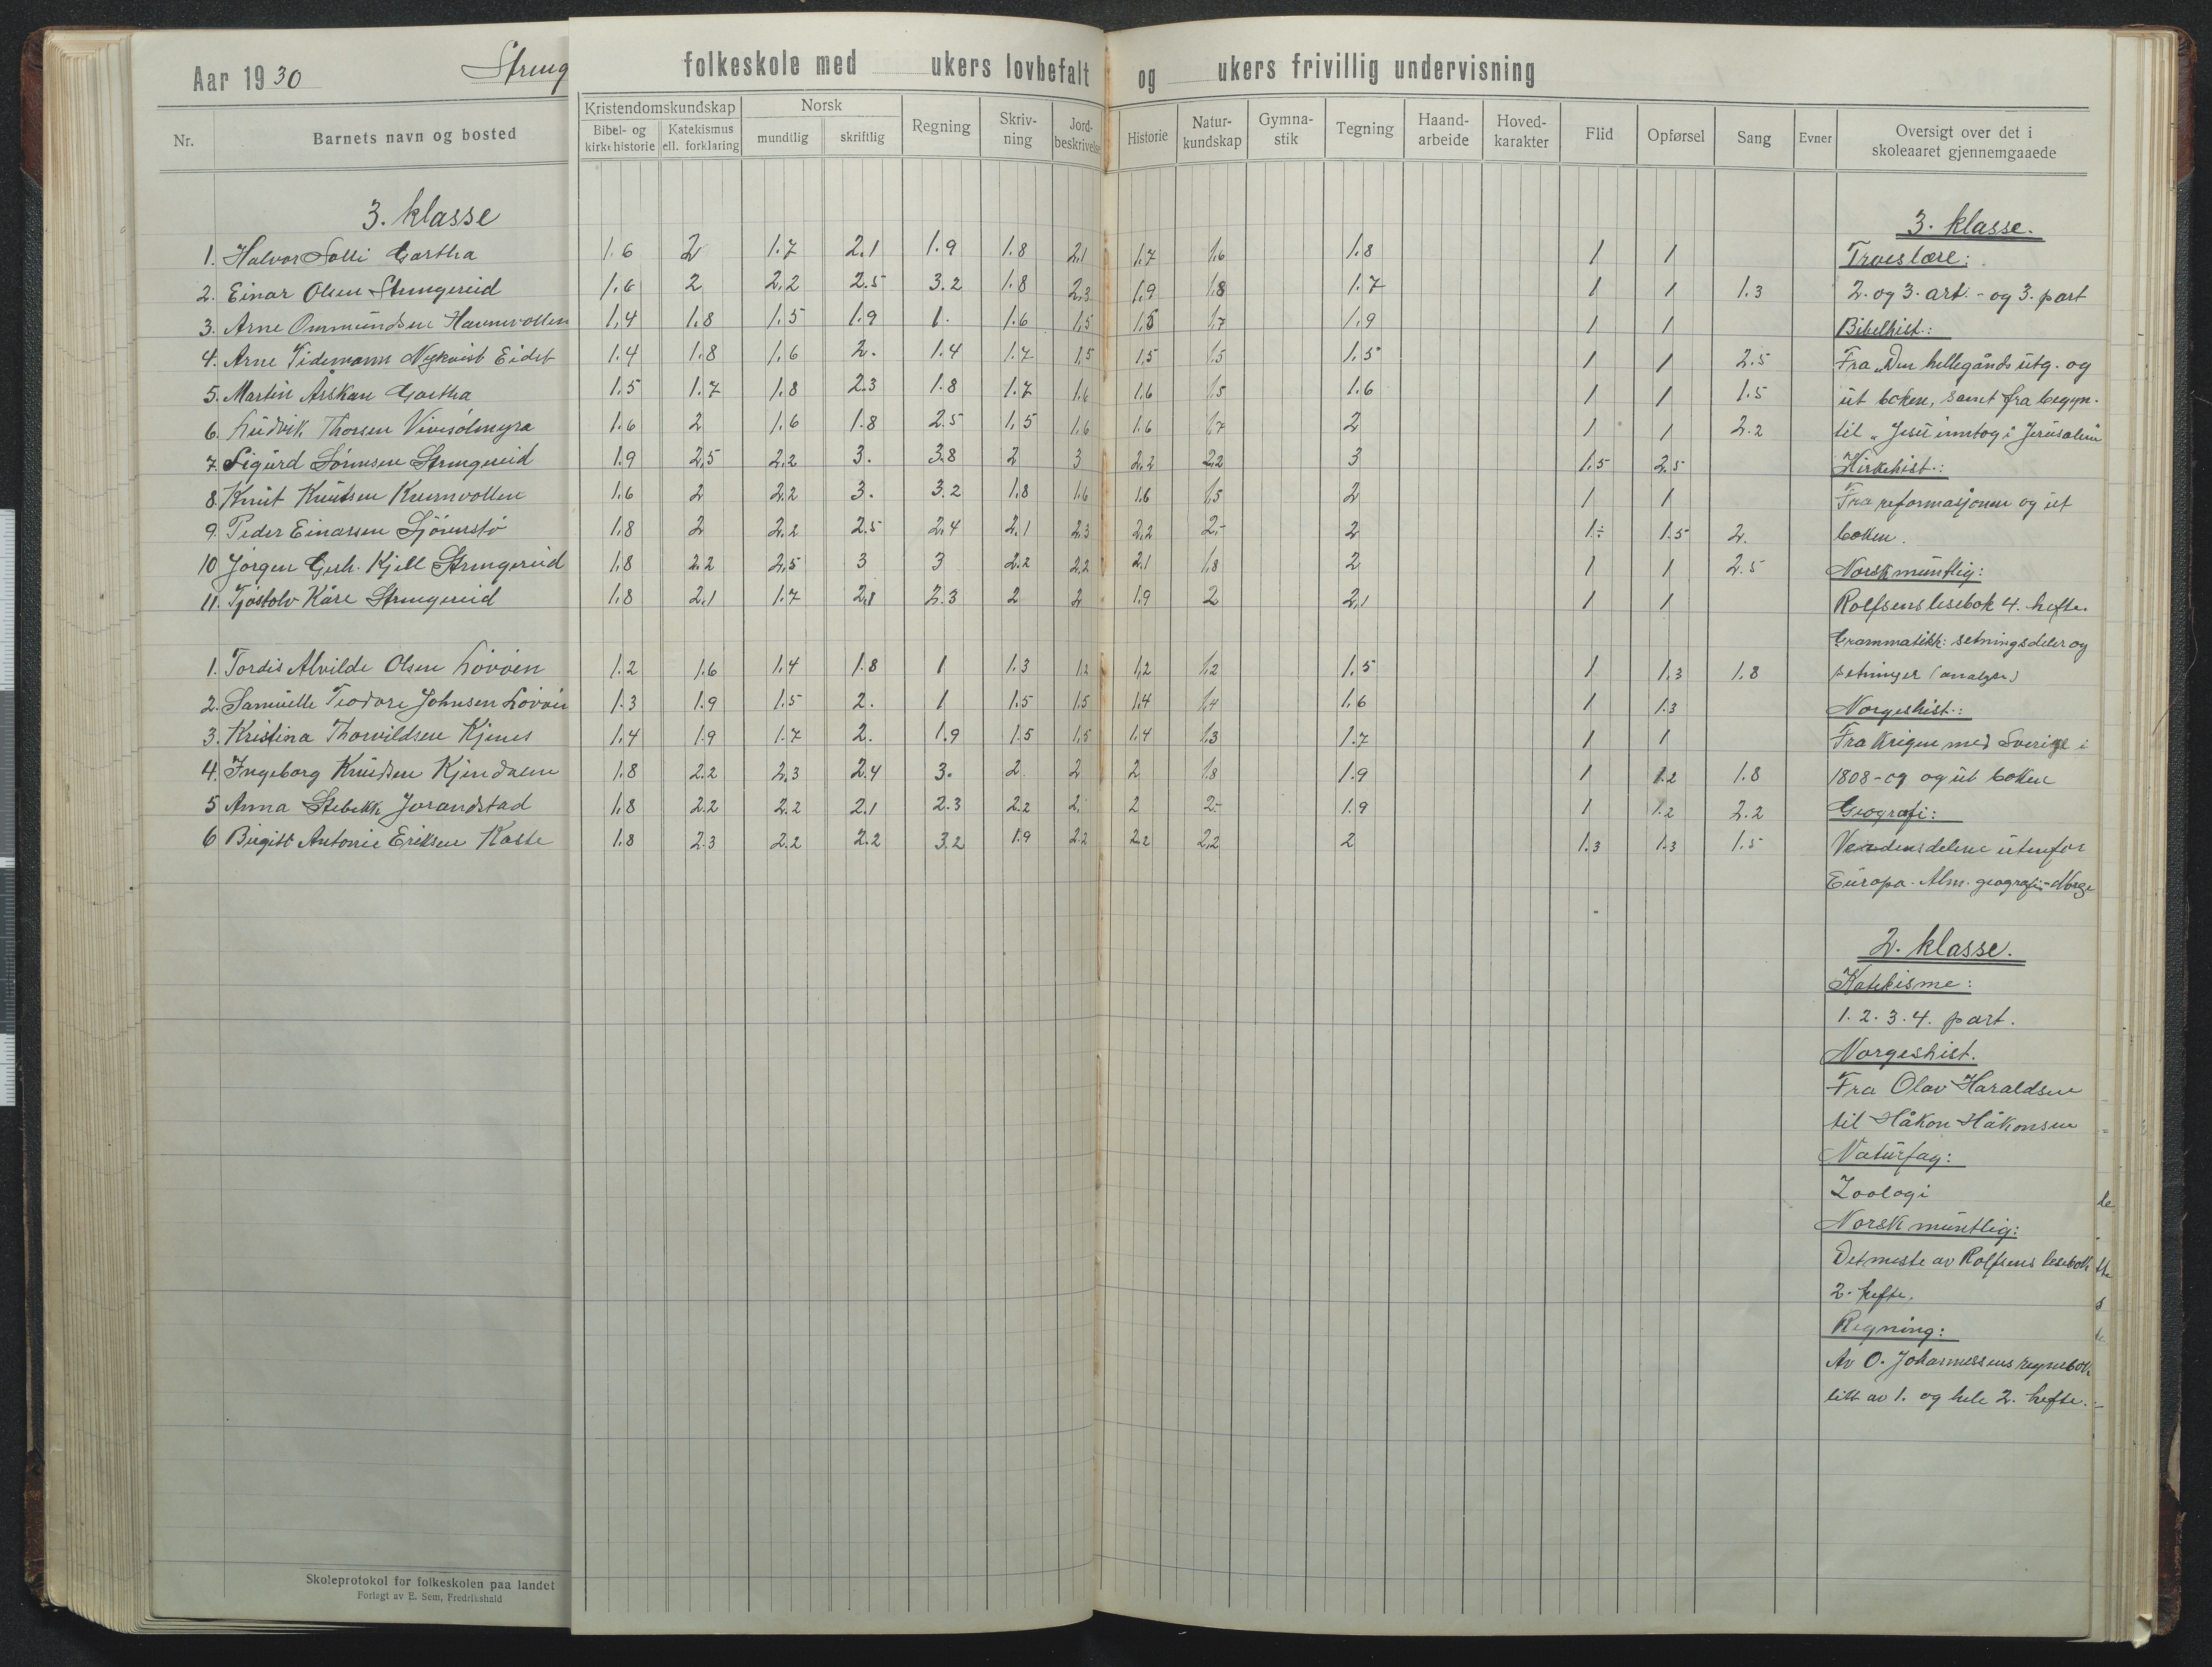 Aar 1930 Streng folkeskole med ukers lovbefalt og ukers frivillig undervisning
Nr. Barnets navn og bosted Kristendomskundskap Bibel- og kirkehistorie Katekismus ell. forklaring Norsk mundtlig skriftlig Regning Skrivning Jordbeskrivelse Historie Naturkundskap Gymnastik Tegning Haandarbeide Hovedkarakter Flid Opførsel Sang Evner Oversigt over det i skoleaaret gjennemgaaede
3. klasse
1. Halvor Solli Gartha 1.6 2 1.7 2.1 1.9 1.8 2,1 1.7 1.6 1.8 1 1
2. Einar Olsen Strengereid 1.6 2 2.2 2.5 3.2 1.8 2.3 1.9 1.8 1.7 1 1 1.3
3. Arne Ommundsen 1,4 1.8 1.5 1.9 1. 1.6 1,5 1.5 1.7 1.9 1 1
4. Arne Tidemann Nykvist Eidet 1.4 1.8 1.6 2. 1.4 1.7 1,5 1,5 1.5 1.5 1 1 2.5
5. Martin Gartha 1.5 1.7 1.8 2.3 1.8 1.7 1.6 1.6 1.5 1.6 1 1 1.5
6. Ludvik Thorsen 1.6 2 1.6 1.8 2.5 1,5 1.6 1.6 1.7 2 1 1 2.2
7. Sigurd Sørensen Strengereid 1.9 2,5 2.2 3. 3.8 2 3 2.2 2.2 3 1.5 2.5
8. Knut Knutsen 1.6 2 2.2 3. 3.2 1.8 1.6 1.6 1.5 2 1 1
9. Peder Einarsen 1.8 2 2.2 2.5 2,4 2.1 2.3 2,2 2,- 2 1÷ 1.5 2.
10 Jørgen Gerh. Kjell Strengereid 1.8 2.2 2,5 3 3 2.2 2.2 2.1 1.8 2 1 1 2.5
11. Tjøstolv Kåre Strengereid 1.8 2.1 1.7 2.1 2.3 2 2 1.9 2 2,1 1 1
1. Tordis Alvilde Olsen Løvøen 1.2 1.6 1.4 1.8 1 1.3 1.2 1,2 1.2 1.5 1 1.3 1.8
2. Samuelle Teodore Johnsen 1.3 1.9 1.5 2. 1 1.5 1.5 1.4 1.4 1.6 1 1.3
3. Kristina Thorvildsen Kjenes 1.4 1.9 1.7 2. 1.9 1.5 1,5 1.4 1.3 1.7 1 1
4. Ingeborg Knudsen Kjendalen 1.8 2.2 2.3 2.4 3. 2 2 2 1.8 1.9 1 1.2 1.8
5 Anna Stebekk Jorandstad 1.8 2.2 2.2 2.1 2.3 2.2 2. 2 2- 1.9 1 1.2 2.2
6 Birgitt Antonie Eriksen Kalle 1.8 2.3 2.2 2.2 3.2 1.9 2.2 2.2 2,2 2 1.3 1.3 1.5
Skoleprotokol for folkeskolen paa landet
Forlagt av E. Sem, Fredrikshald
3. klasse.
Troeslære:
2. og 3. art. - og 3. part
Bibelhist.:
Fra „Den helligånds utg. og
ut boken, samt fra begyn.
til „Jesu inntog i Jerusalem
Kirkehist.:
Fra reformasjonen og ut
boken.
Norsk muntlig:
Rolfsens lesebok 4. hefte.
Grammatikk: setningsdeler og
setninger (analyse)
Norgeshist.:
Fra krigen med Sverige i
1808-09 og ut boken
Geografi:
Verdensdelene utenfor
Europa. Alm. geografi - Norge
2. klasse.
Katekisme:
1. 2. 3. 4. part.
Norgeshist.
Fra Olav Haraldsen
til Håkon Håkonsen
Naturfag:
Zoologi
Norsk muntlig:
Det meste av Rolfsens lesebok
2. hefte.
Regning:
Av O. Johannessens regnebok
litt av 1. og hele 2. hefte.